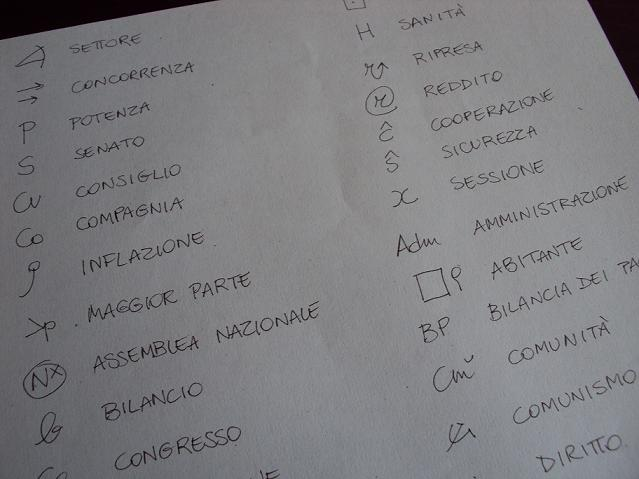 SETTORE
⇉ CONCORRENZA
P POTENZA
S SENATO
CU CONSIGLIO
Co COMPAGNIA
INFLAZIONE
>p MAGGIOR PARTE
NX ASSEMBLEA NAZIONALE
b BILANCIO
CONGRESSO
H SANITÀ
RIPRESA
r REDDITO
ĉ COOPERAZIONE
ŝ SICUREZZA
x SESSIONE
Adm AMMINISTRAZIONE
ABITANTE
BP BILANCIA DEI
Cm̌ COMUNITÀ
COMUNISMO
DIRITTO